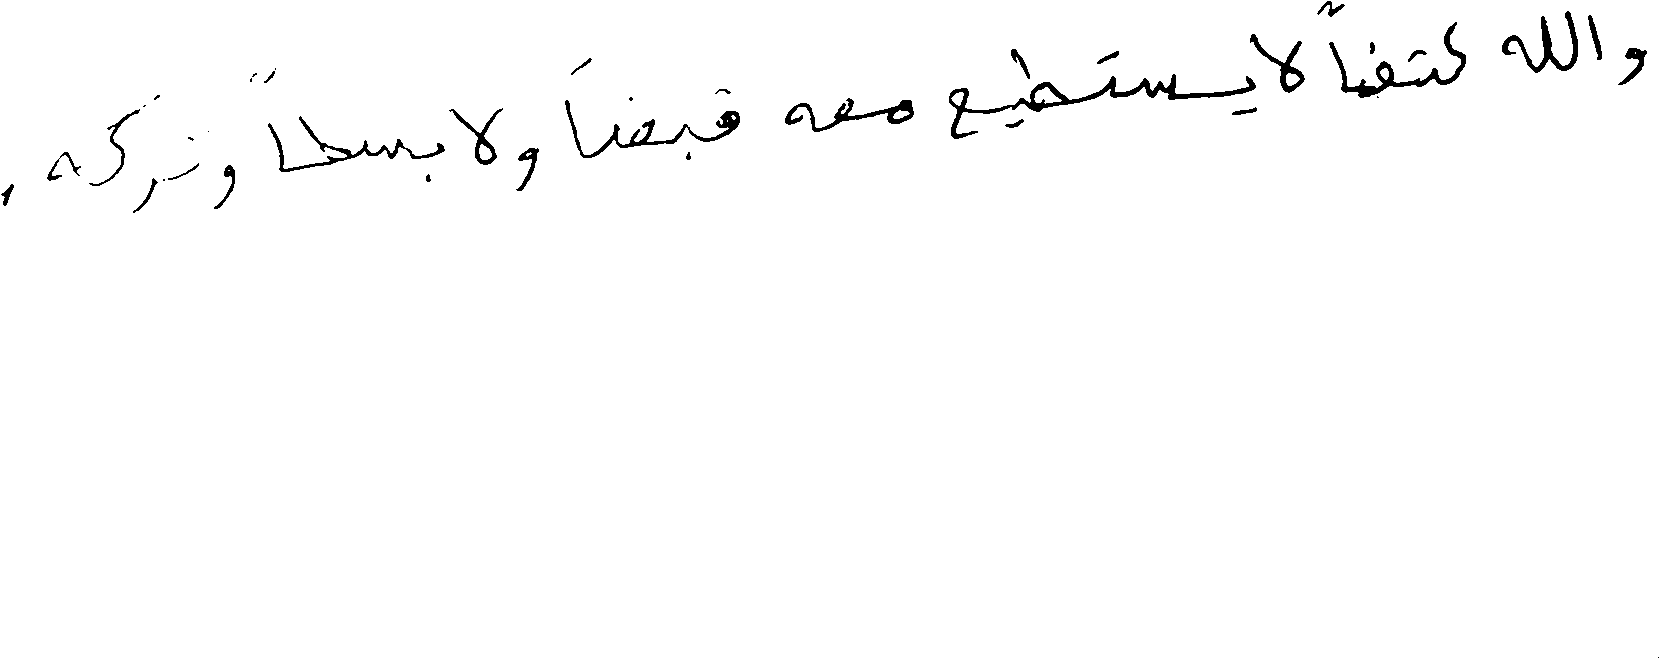 والله كتفاً لا يستطيع معه قبضاً ولا بسطاً وتركه .